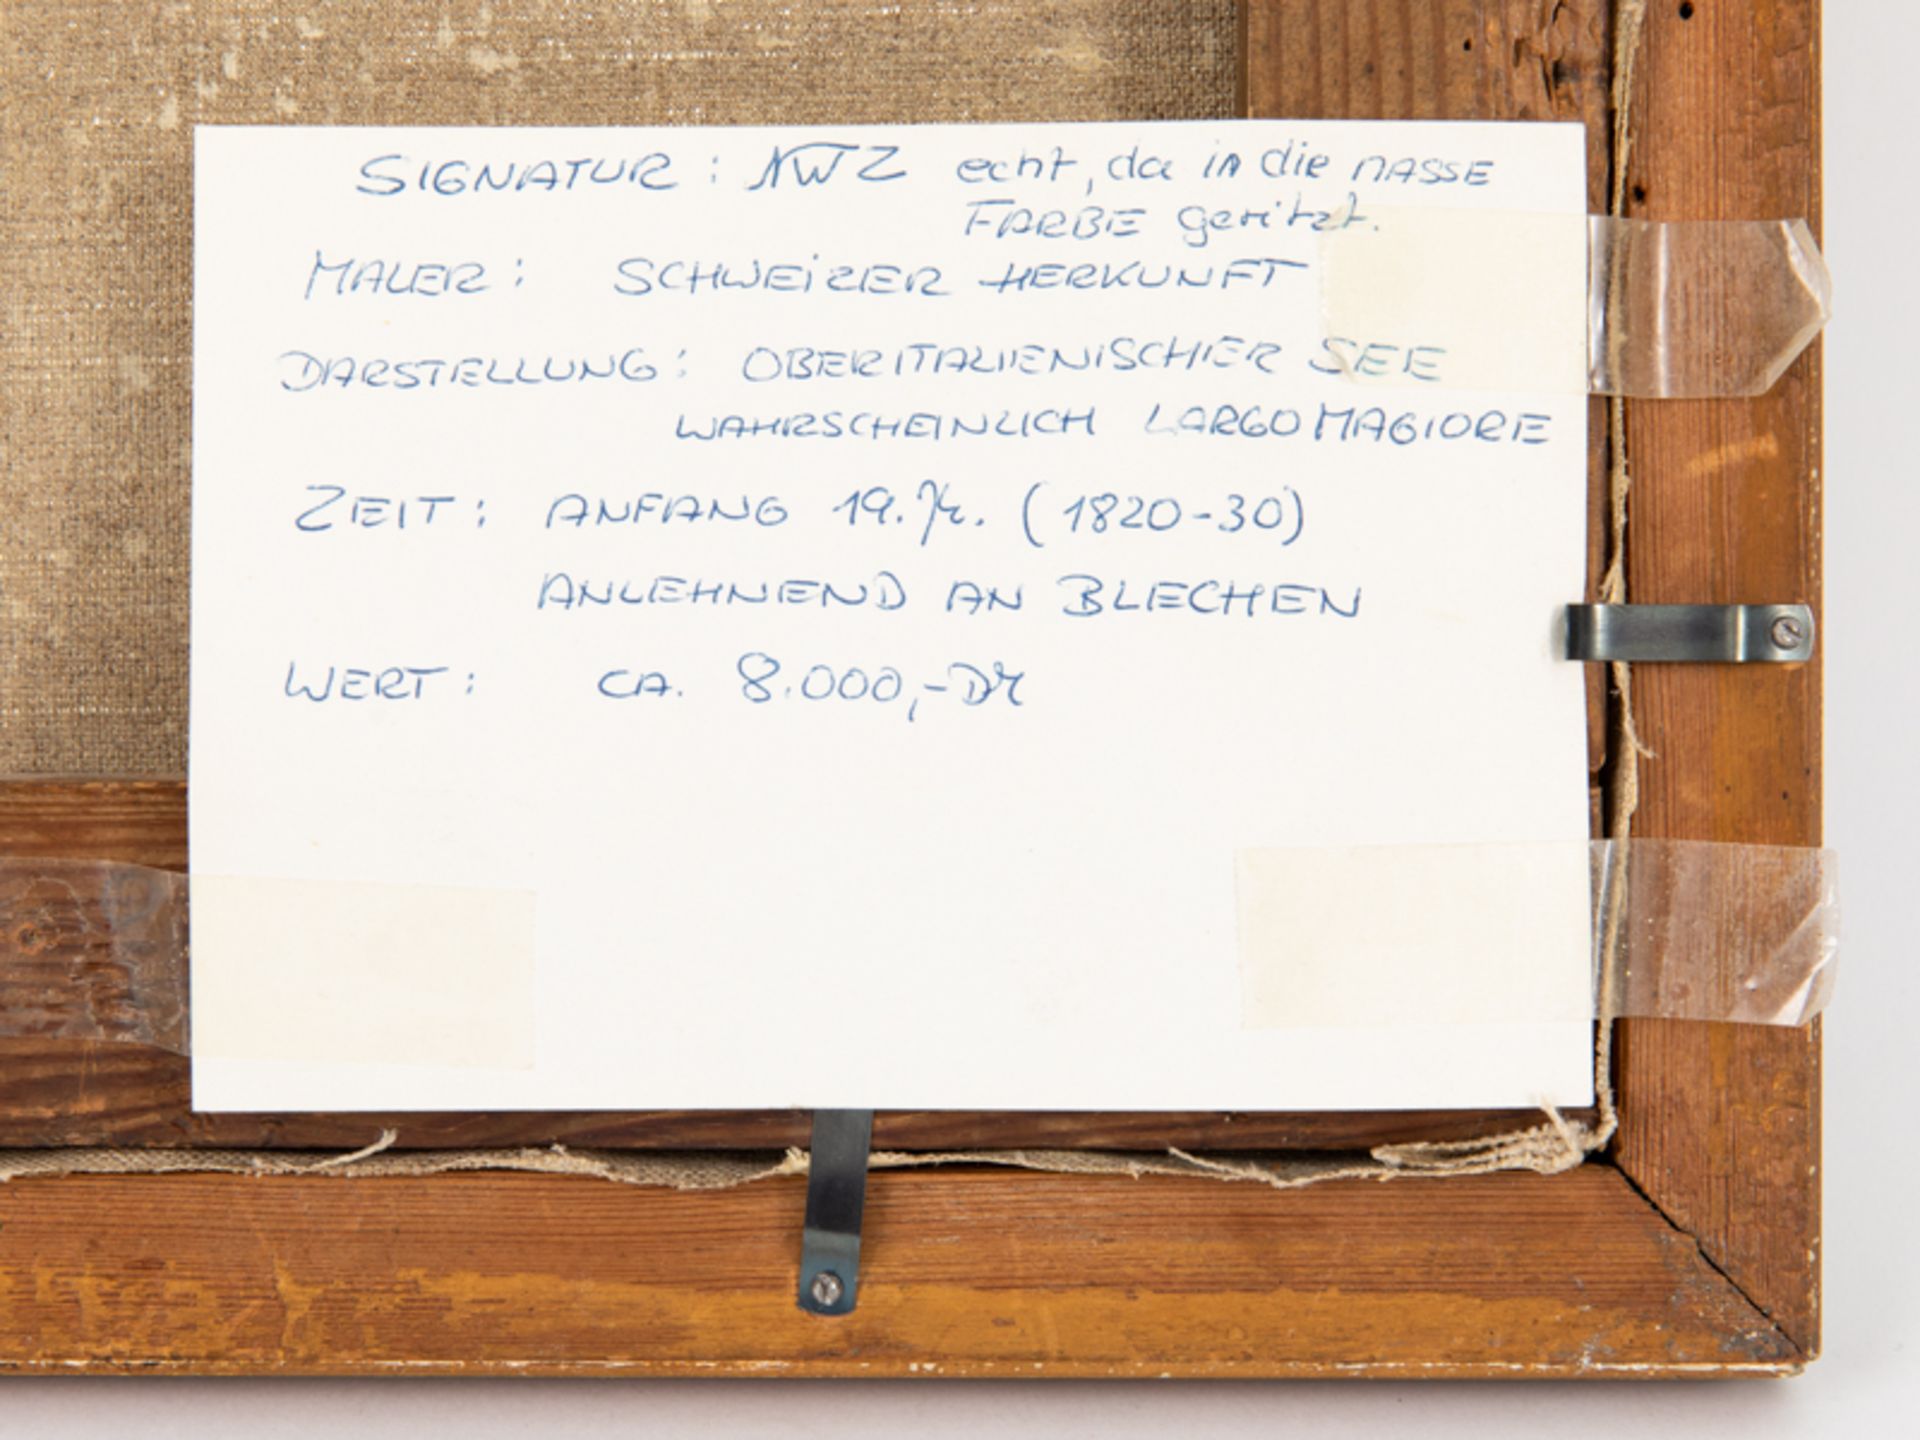 SIGNATUR: NWZ echt, da in die NASSE
FARBE geritzt.
MALER: SCHWEIZER HERKUNFT
DARSTELLUNG: OBERITALIENISCHER SEE
WAHRSCHEINLICH LARGO MAGIORE
ZEIT: ANFANG 19. Jh. (1820-30)
ANLEHNEND AN BLECHEN
WERT: CA. 8.000,- DM